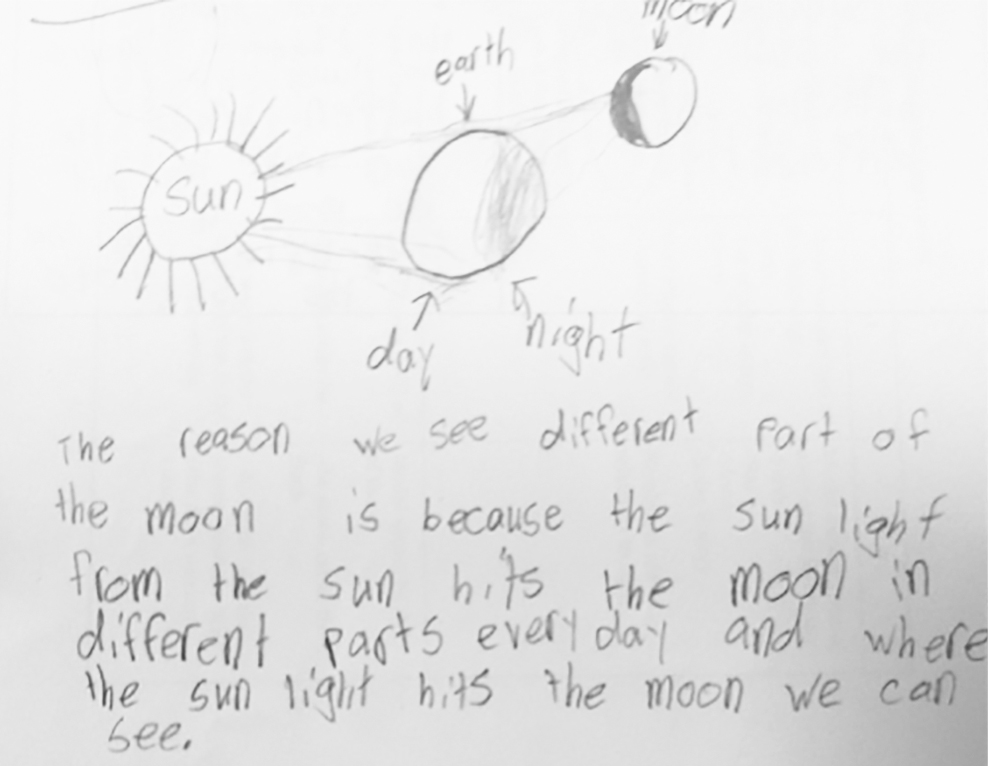 moon
earth
Sun
day
night
The reason we see different part of
the moon is because the sun light
from the sun hits the moon in
different parts every day and where
the sun light hits the moon we can
see.